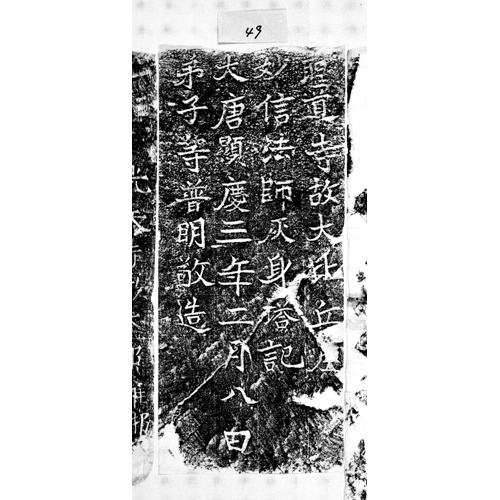 49
聖道寺故大比丘尼
妙信法師灰身塔記
大唐顯慶三年二月八日
弟子等普明敬造
光